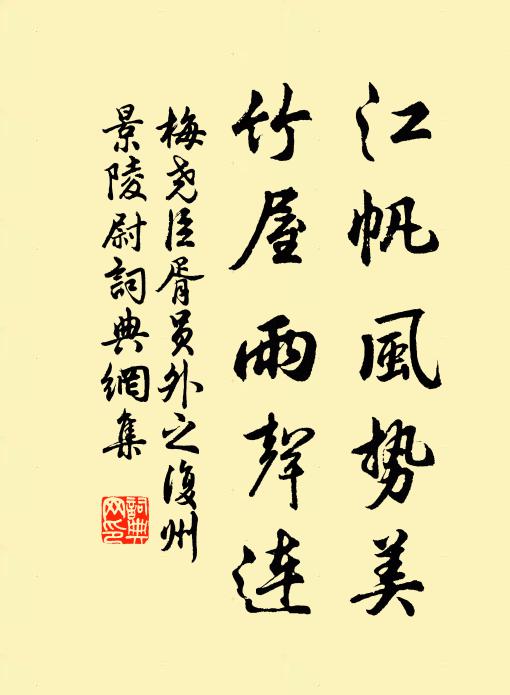 江帆風势美
竹屋雨聲連
梅尧臣胥员外之復州
景陵尉詞典網集
詞典
网印